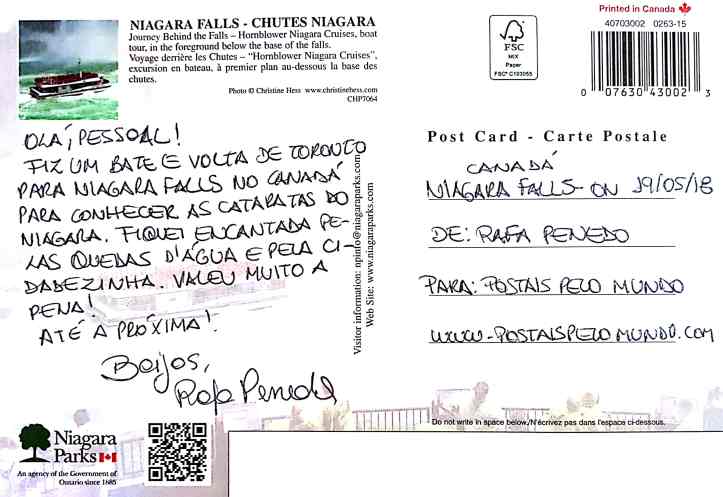 NIAGARA FALLS - CHUTES NIAGARA
Journey Behind the Falls – Hornblower Niagara Cruises, boat
tour, in the foreground below the base of the falls.
Voyage derrière les Chutes – "Hornblower Niagara Cruises",
excursion en bateau, à premier plan au-dessous la base des
chutes.
Photo © Christine Hess www.christinehess.com
CHP7064
OLÁ, PESSOAL!
FIZ UM BATE E VOLTA DE TORONTO
PARA NIAGARA FALLS NO CANADÁ
PARA CONHECER AS CATARATAS DO
NIAGARA. FIQUEI ENCANTADA PE-
LAS QUEDAS D'ÁGUA E PELA CI-
DADEZINHA. VALEU MUITO A
PENA!
ATÉ A PRÓXIMA!
Beijos,
Rafa Penedo
Niagara
Parks
An agency of the Government of
Ontario since 1885
Visitor information: npinfo@niagaraparks.com
Web Site: www.niagaraparks.com
FSC
MIX
Paper
FSC® C103055
Printed in Canada
40703002 0263-15
0 07630 43002 3
Post Card - Carte Postale
CANADÁ
NIAGARA FALLS - ON 19/05/18
DE: RAFA PENEDO
PARA: POSTAIS PELO MUNDO
WWW.POSTAISPELOMUNDO.COM
Do not write in space below./N'écrivez pas dans l'espace ci-dessous.